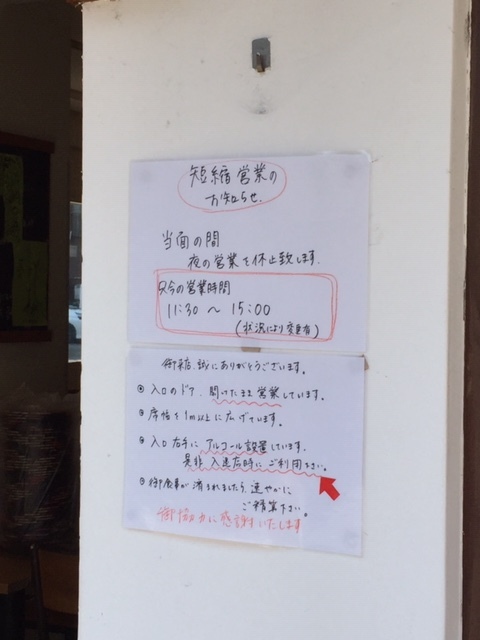 短縮営業の
お知らせ.
当面の間
夜の営業を休止致します.
只今の営業時間
11:30 〜 15:00
(状況により変更有)
御来店、誠にありがとうございます。
◉ 入口のドア、開けたまま営業しています。
◉ 席幅を1m以上に広げています。
◉ 入口右手にアルコール設置しています.
是非 入退店時にご利用下さい。
◉ 御食事が済まれましたら、速やかに
ご精算下さい。
御協力に感謝いたします